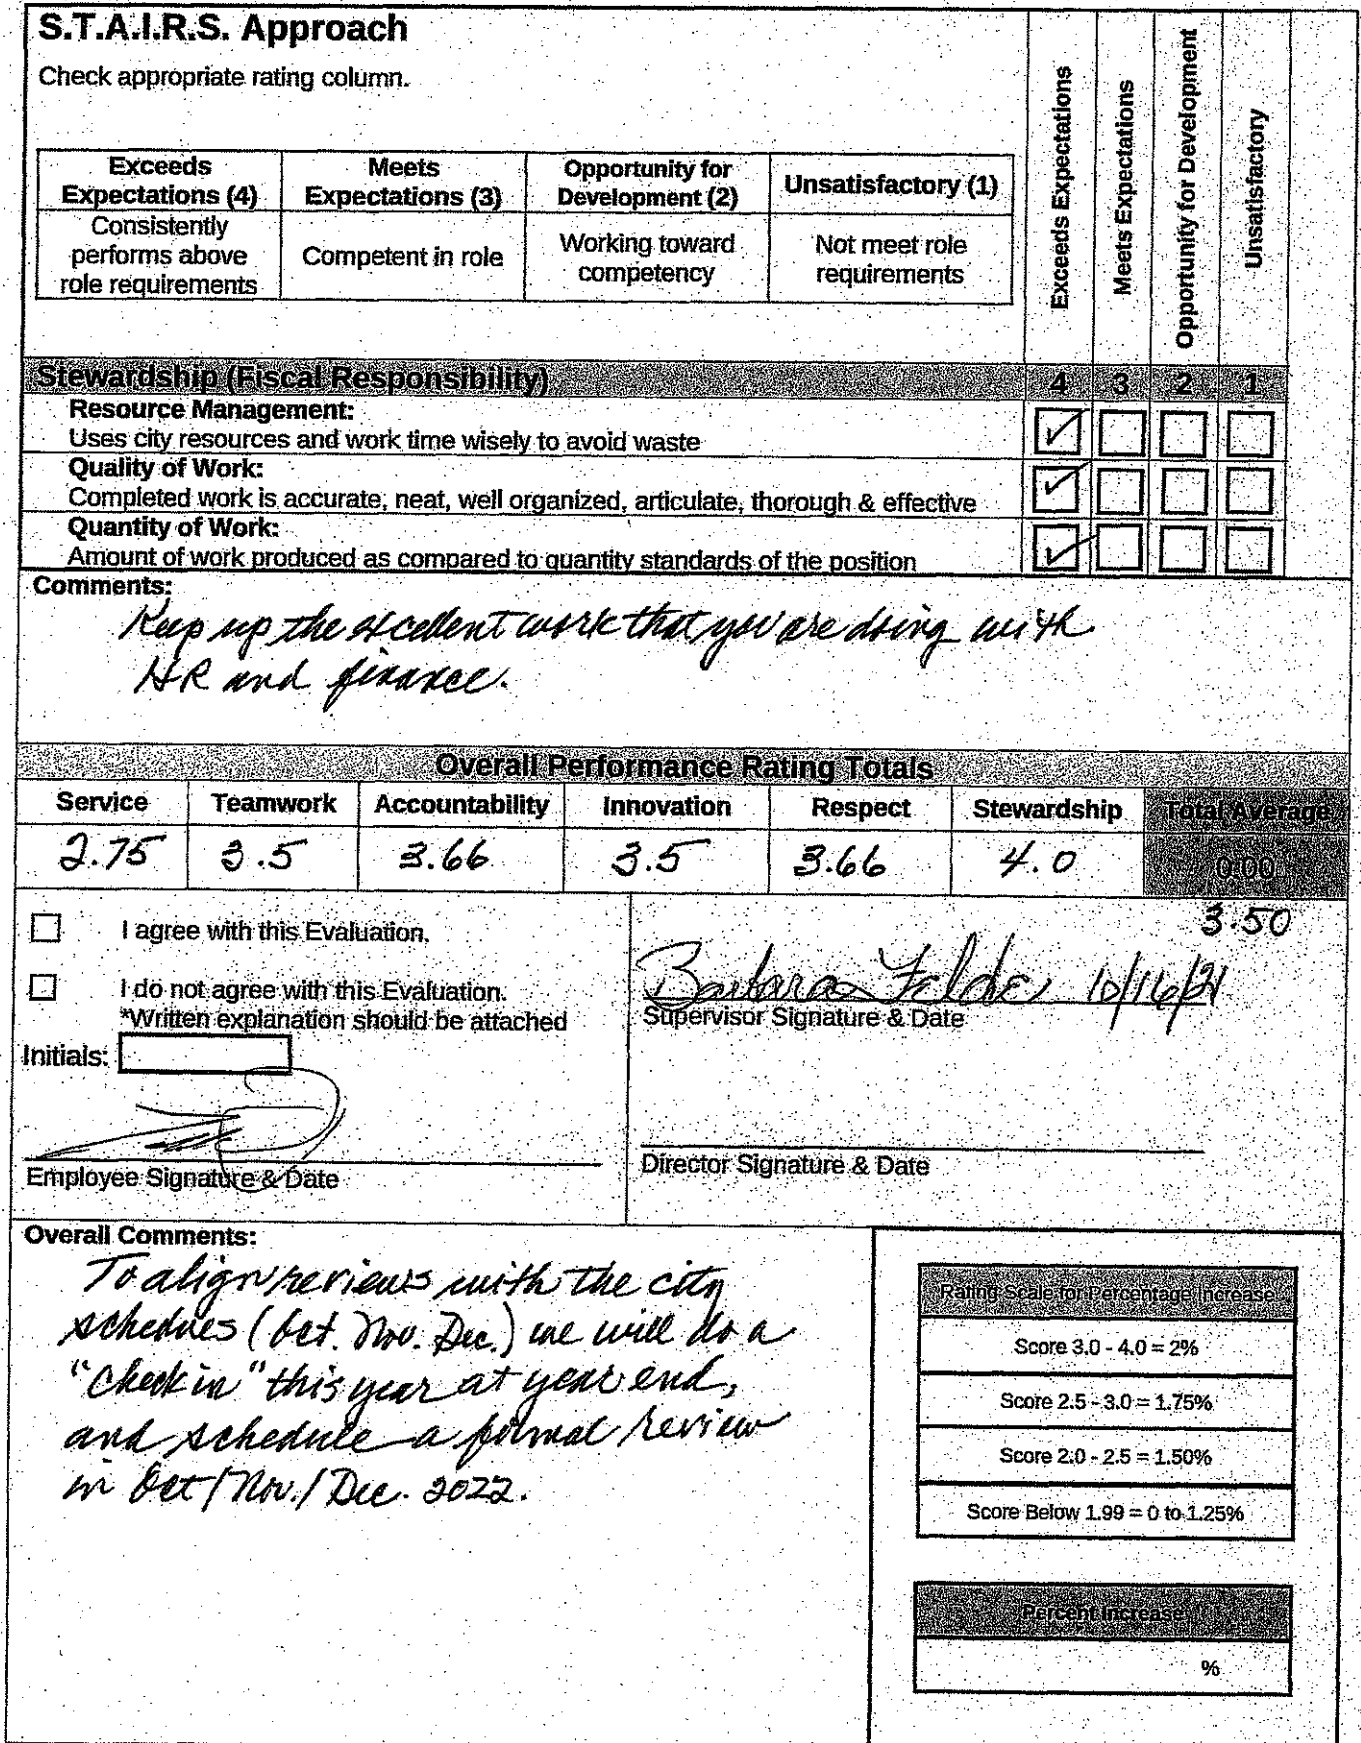 S.T.A.I.R.S. Approach
Check appropriate rating column.
Exceeds Expectations
Meets Expectations
Opportunity for Development
Unsatisfactory
Exceeds Expectations (4)
Meets Expectations (3)
Opportunity for Development (2)
Unsatisfactory (1)
Consistently performs above role requirements
Competent in role
Working toward competency
Not meet role requirements
Stewardship (Fiscal Responsibility) 4 3 2 1
Resource Management:
Uses city resources and work time wisely to avoid waste
Quality of Work:
Completed work is accurate, neat, well organized, articulate, thorough & effective
Quantity of Work:
Amount of work produced as compared to quantity standards of the position
Comments:
Keep up the excellent work that you are doing with
HR and finance.
Overall Performance Rating Totals
Service Teamwork Accountability Innovation Respect Stewardship Total Average
2.75 3.5 3.66 3.5 3.66 4.0 0.00
3.50
I agree with this Evaluation.
I do not agree with this Evaluation.
*Written explanation should be attached
Initials:
Barbara 10/16/21
Supervisor Signature & Date
Employee Signature & Date
Director Signature & Date
Overall Comments:
To align reviews with the city
schedules (Oct. Nov. Dec.) we will do a
"Check in" this year at year end,
and schedule a formal review
in Oct/Nov./Dec. 2022.
Rating Scale for Percentage Increase
Score 3.0 - 4.0 = 2%
Score 2.5 - 3.0 = 1.75%
Score 2.0 - 2.5 = 1.50%
Score Below 1.99 = 0 to 1.25%
Percent Increase
%